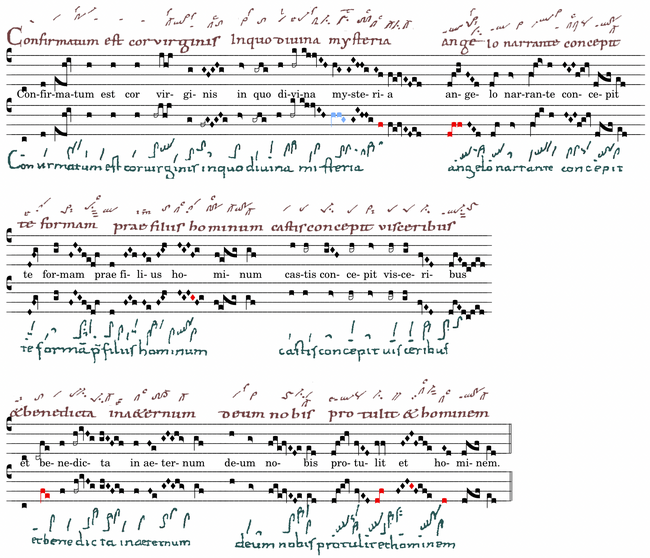 Confirmatum est cor virginis Inquo divina mysteria ange lo narrante concepit
Con-fir-ma-tum est cor vir- gi- nis in quo di-vi-na my-ste-ri-a an-ge- lo nar-ran-te con- ce-pit
Con virmatum est cor virginis inquo divina mi steria angelo narrante concepit
te formam prae filius hominum castis concepit visceribus
te for-mam prae fi-li-us ho- mi- num cas-tis con- ce-pit vis-ce- ri- bus
te formā p filius hominum castis concepit visceribus
&benedicta inaeternum deum nobis pro tulit & hominem
et be-ne-dic- ta in ae-ter-num de-um no- bis pro-tu-lit et ho-mi-nem.
et bene dicta inaeternum deum nobis protulit et hominem